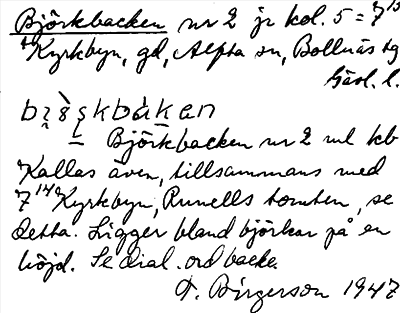 Björkbacken nr 2 jr kol. 5 = 7¹³
Kyrkbyn, gd, Alfta sn, Bollnäs tg
Gävl. l.
Björkbacken nr 2 enl kb
Kallas även, tillsammans med
7¹⁴ Kyrkbyn, Runells tomten, se
detta. Ligger bland björkar på en
höjd. Se dial. ord backe.
F. Birgerson 1947